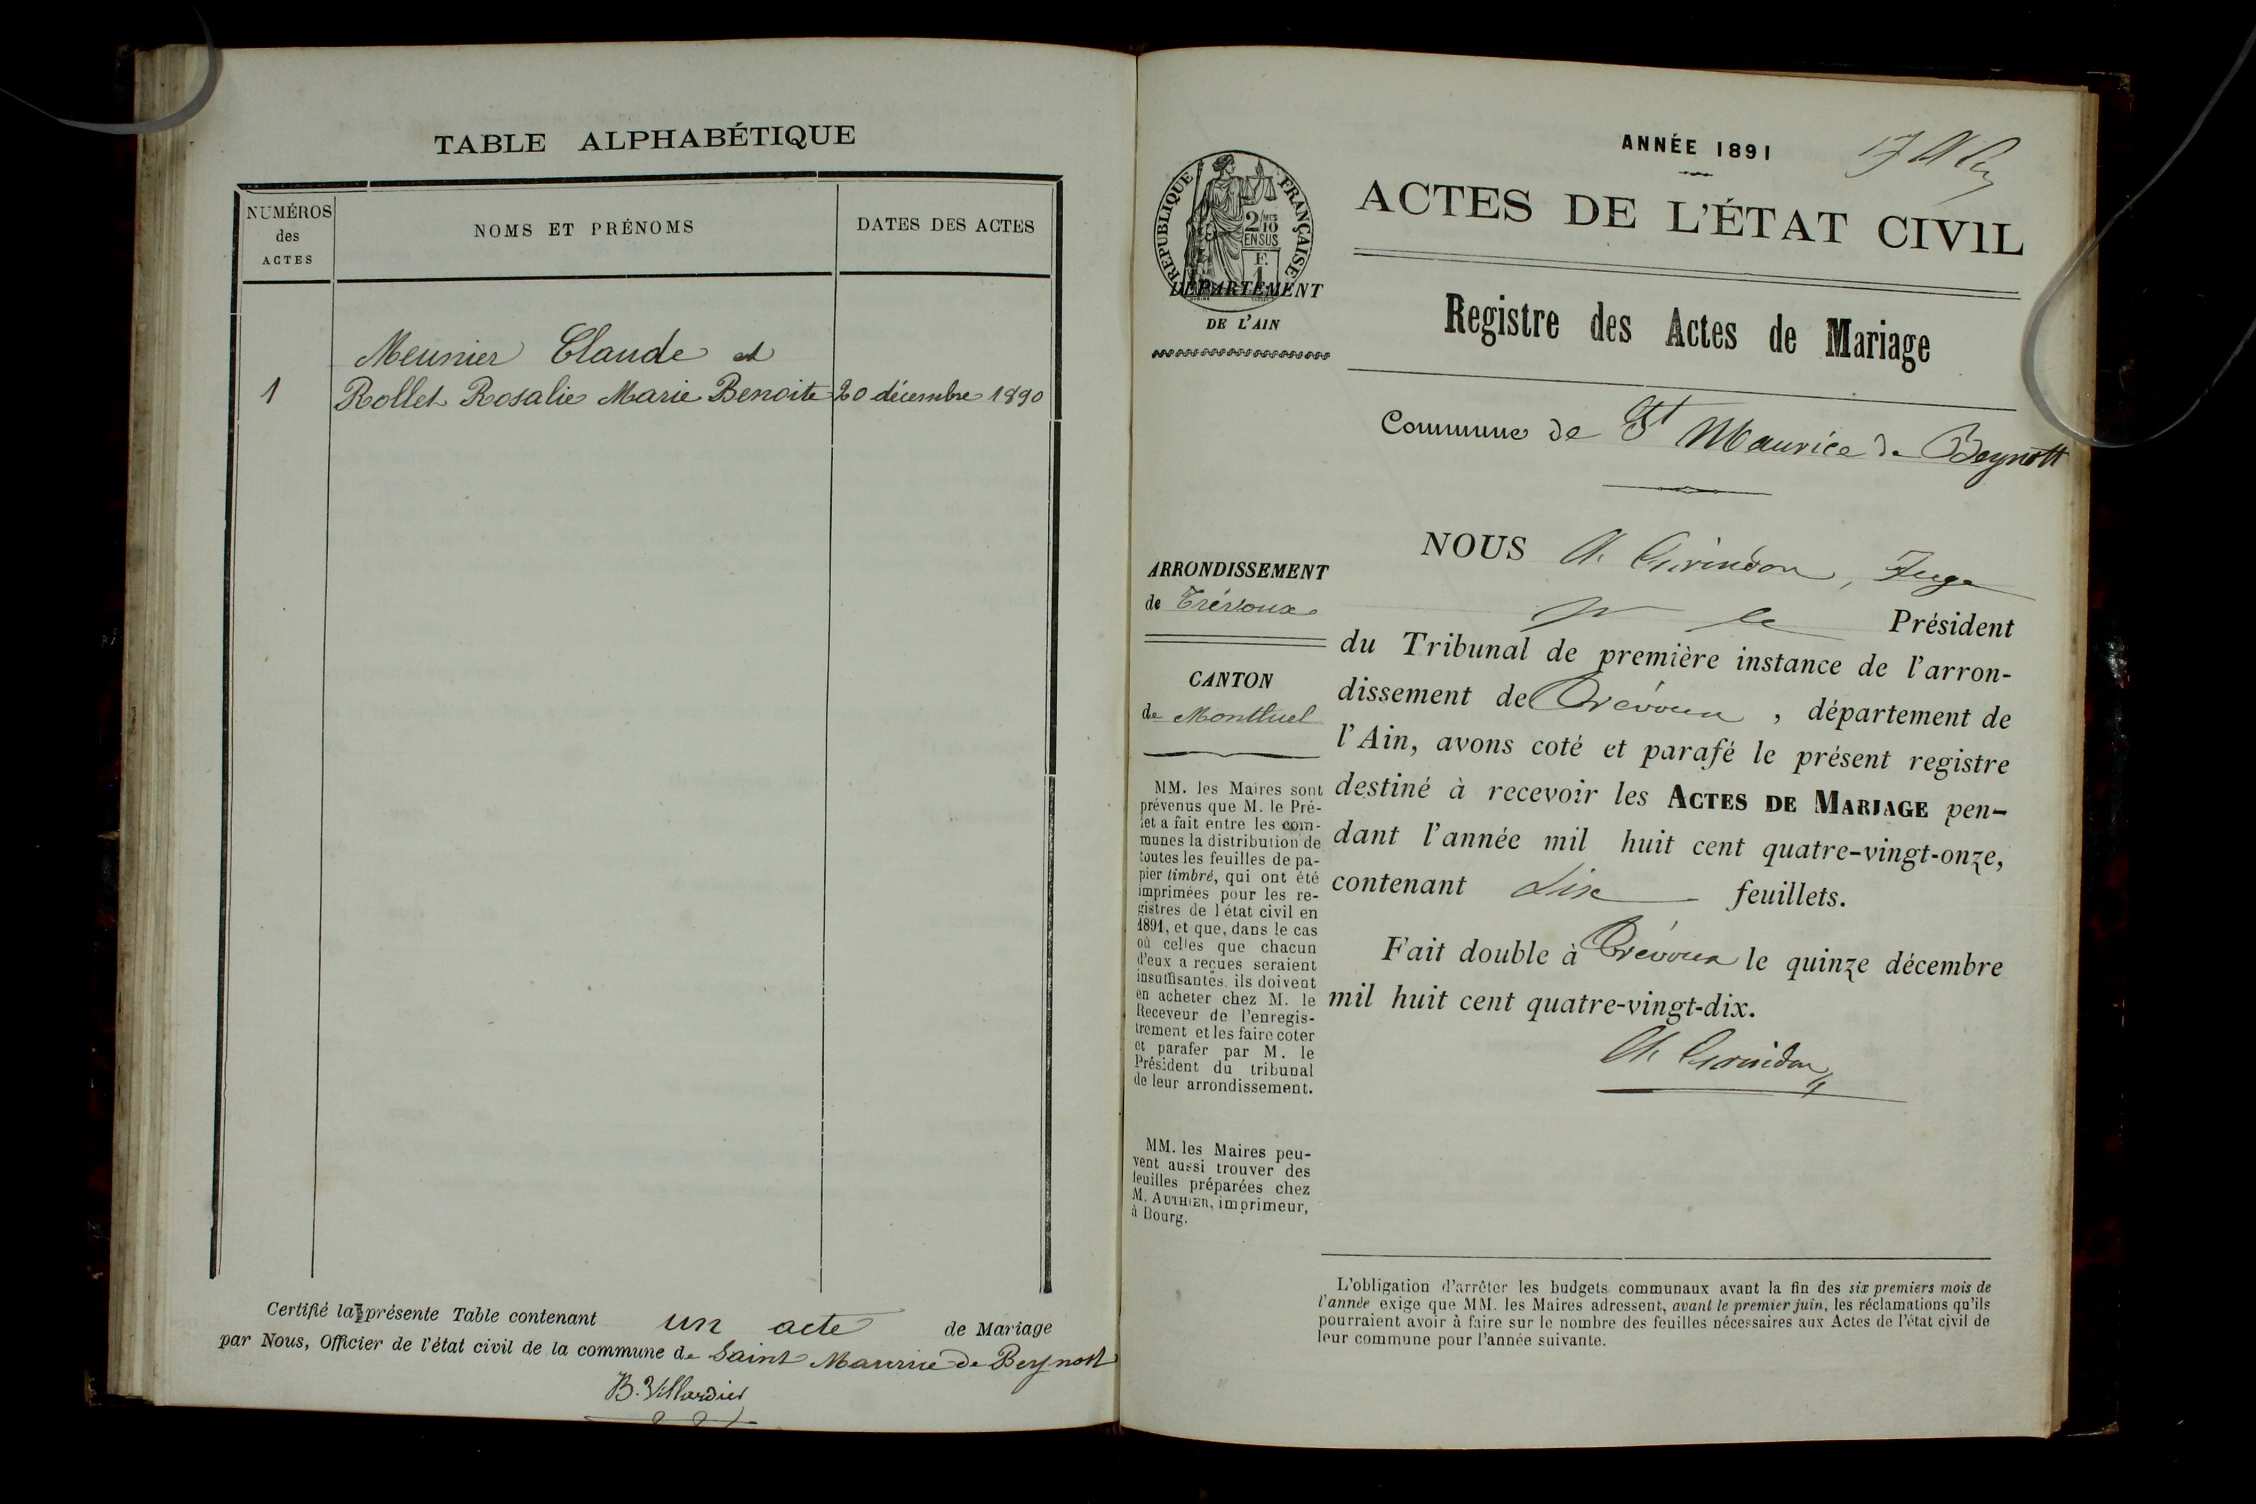 TABLE ALPHABÉTIQUE
NUMÉROS
des
ACTES
NOMS ET PRÉNOMS
DATES DES ACTES
Meunier Claude et
1 Rollet Rosalie Marie Benoite 20 décembre 1890
Certifié la présente Table contenant un acte de Mariage
par Nous, Officier de l'état civil de la commune de Saint Maurice de Beynost
B. Villardier
ANNÉE 1891
RÉPUBLIQUE FRANÇAISE
2/10
EN SUS
F.
1
DÉPARTEMENT
DE L'AIN
ACTES DE L'ÉTAT CIVIL
Registre des Actes de Mariage
Commune de St Maurice de Beynost
ARRONDISSEMENT
de Trévoux
CANTON
de Montluel
MM. les Maires sont
prévenus que M. le Pré-
fet a fait entre les com-
munes la distribution de
toutes les feuilles de pa-
pier timbré, qui ont été
imprimées pour les re-
gistres de l'état civil en
1891, et que, dans le cas
où celles que chacun
d'eux a reçues seraient
insuffisantes, ils doivent
en acheter chez M. le
Receveur de l'enregis-
trement et les faire coter
et parafer par M. le
Président du tribunal
de leur arrondissement.
MM. les Maires peu-
vent aussi trouver des
feuilles préparées chez
M. AUTHIER, imprimeur,
à Bourg.
NOUS Juge
le Président
du Tribunal de première instance de l'arron-
dissement de Trévoux, département de
l'Ain, avons coté et parafé le présent registre
destiné à recevoir les ACTES DE MARIAGE pen-
dant l'année mil huit cent quatre-vingt-onze,
contenant feuillets.
Fait double à Trévoux le quinze décembre
mil huit cent quatre-vingt-dix.
L'obligation d'arrêter les budgets communaux avant la fin des six premiers mois de
l'année exige que MM. les Maires adressent, avant le premier juin, les réclamations qu'ils
pourraient avoir à faire sur le nombre des feuilles nécessaires aux Actes de l'état civil de
leur commune pour l'année suivante.